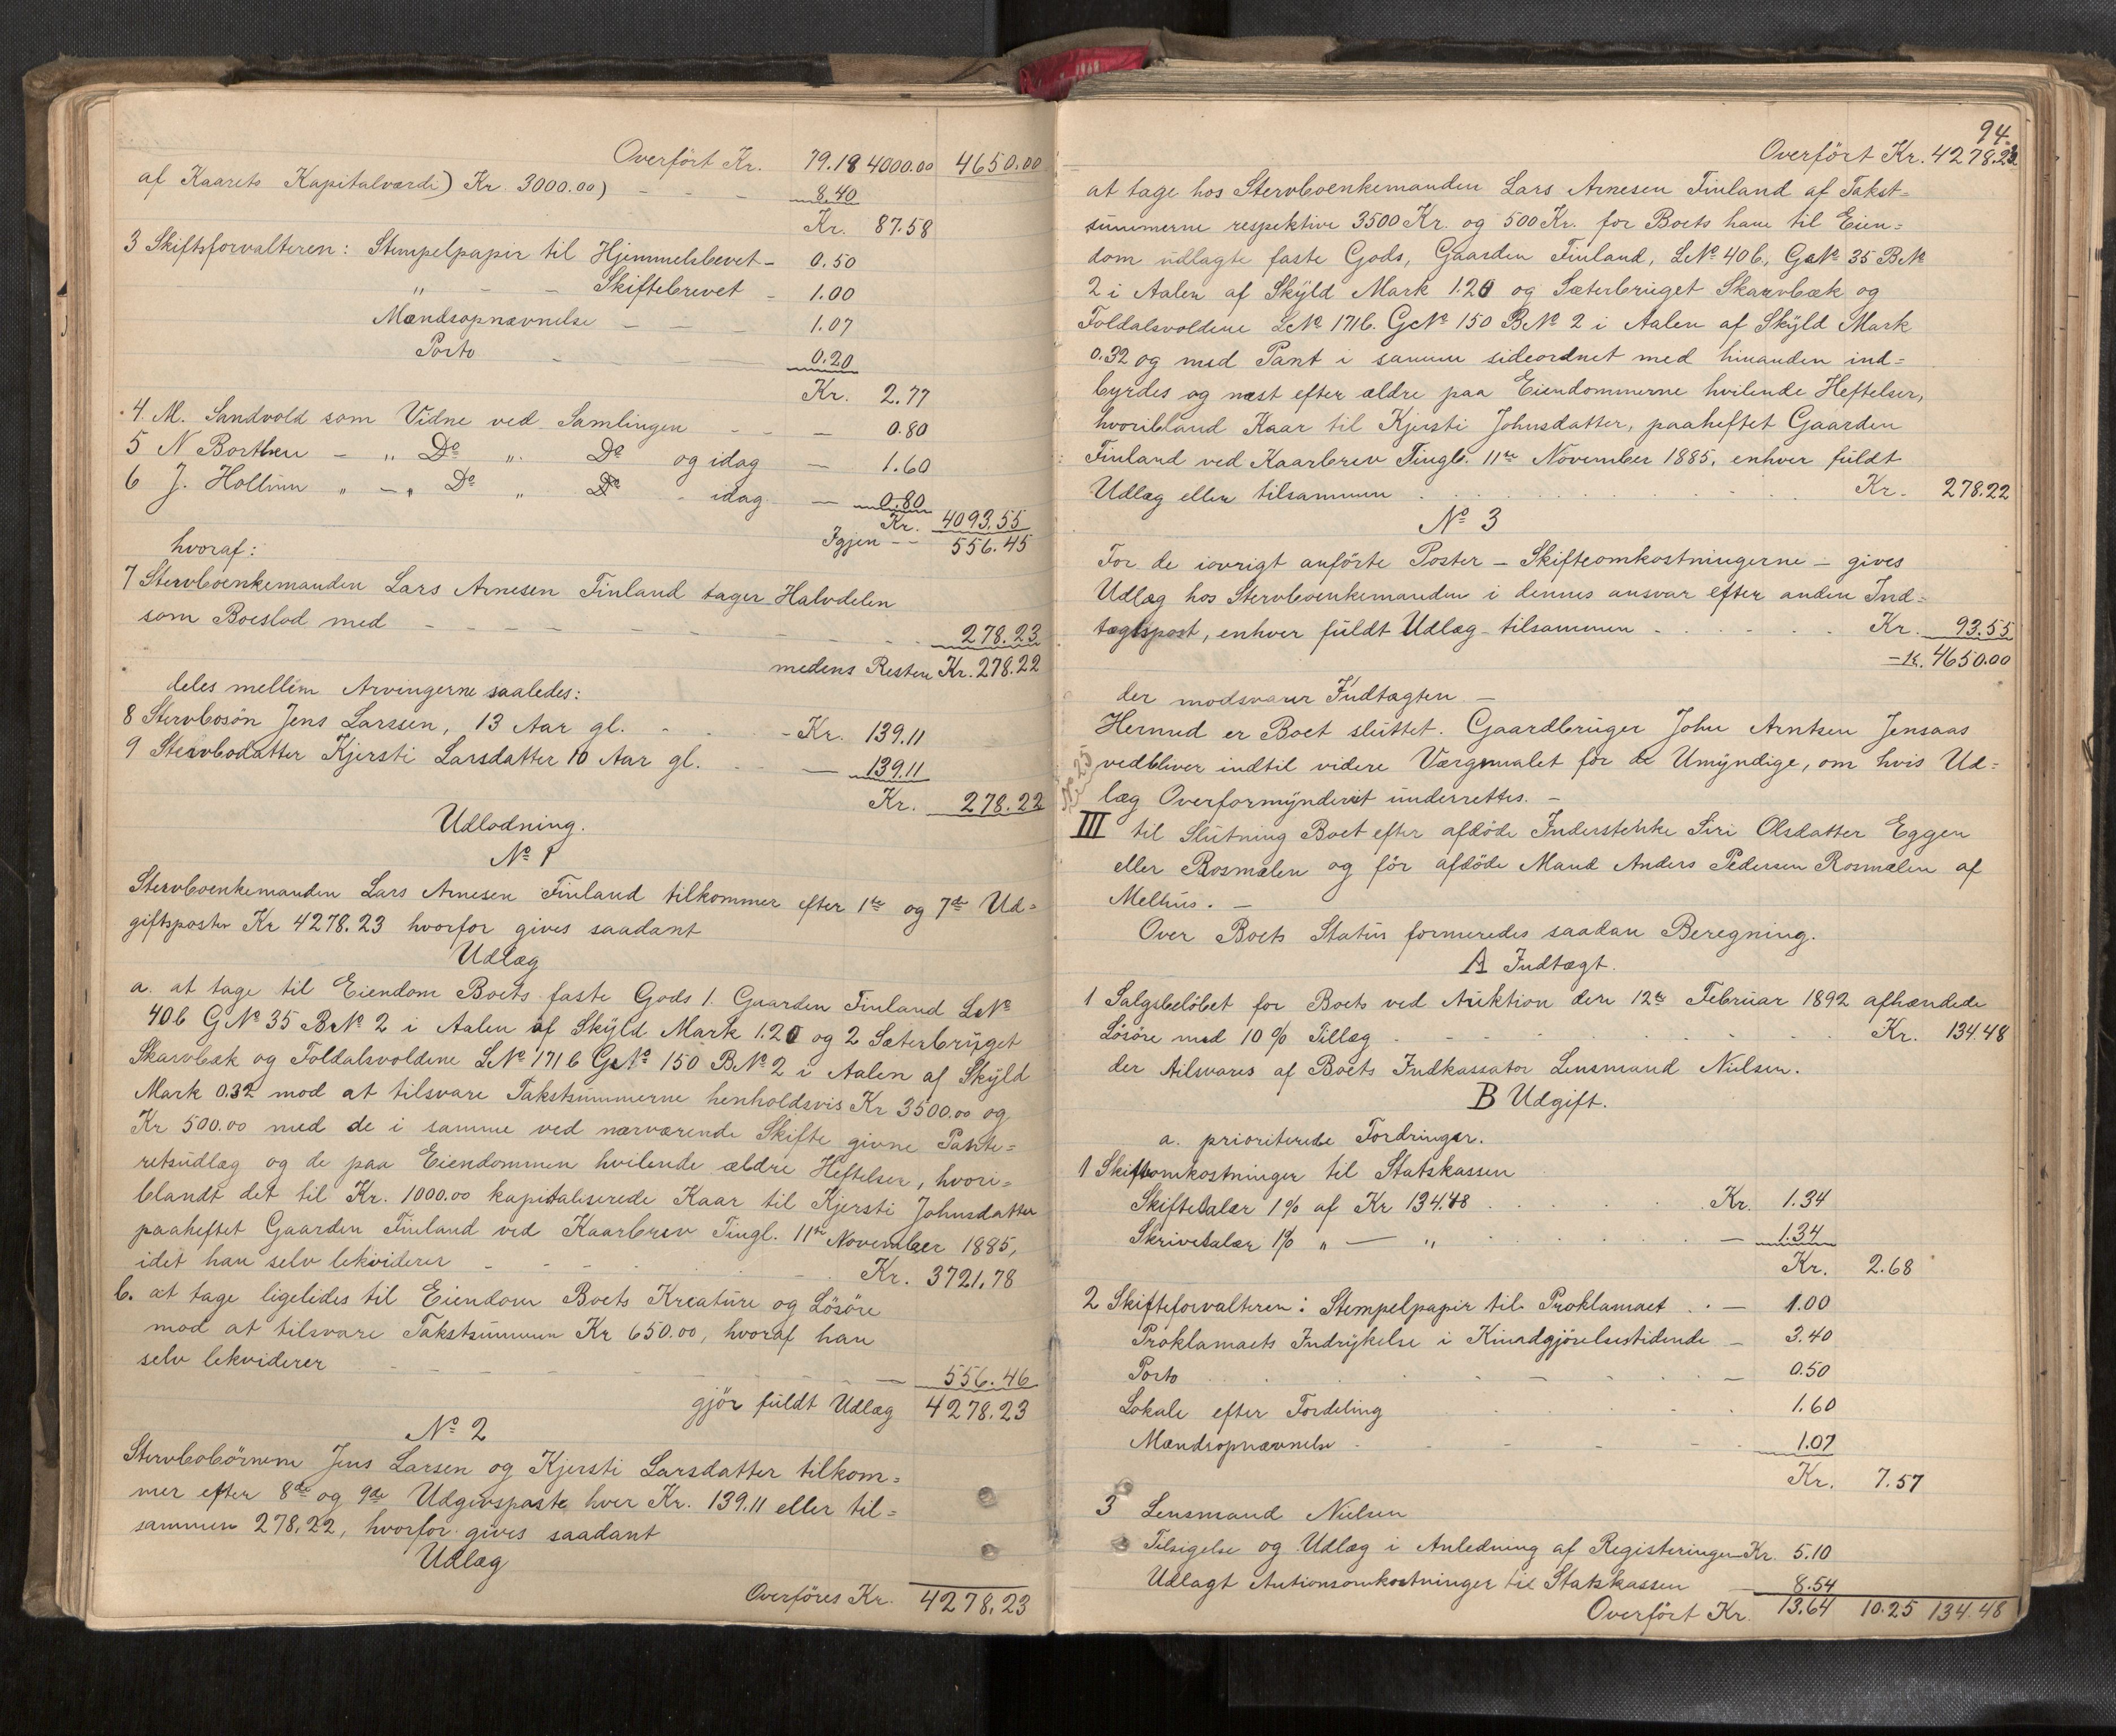 Overført Kr. 79.18 4000.00 4650.00
af Kaarets Kapitalværdi) Kr. 3000.00) - - 8.40
Kr. 87.58
3 Skiftsforvalteren: Stempelpapir til Hjemmelsbevet - 0.50
" - - Skiftebrevet - 1.00
Mændsopnævnelse - - - 1.07
Porto - - 0.20
Kr. 2.77
4. M. Sandvold som Vidne ved Samlingen - - - 0.80
5 N Borthen - " Do " Do og idag - 1.60
6 J. Hollim " - " Do " Do - idag - 0.80
Kr. 4093.55
Igjen - - 556.45
hvoraf:
7 Stervboenkemanden Lars Arnesen Finland tager Halvdelen
som Boeslod med - - - - - - 278.23
medens Resten Kr. 278.22
deles mellem Arvingerne saaledes:
8 Stervbosøn Jens Larssen, 13 Aar gl. - - Kr. 139.11
9 Stervbodatter Kjersti Larsdatter 10 Aar gl. - - 139.11
Kr. 278.22
Udlodning.
No 1
Stervboenkemanden Lars Arnesen Finland tilkommer efter 1ste og 7de Ud=
giftsposter Kr 4278.23 hvorfor gives saadant
Udlæg
a. at tage til Eiendom Boets faste Gods 1. Gaarden Finland LNo
40b GNo 35 BNo 2 i Aalen af Skyld Mark 1.20 og 2 Sæterbruget
Skarvbæk og Foldalsvoldene LNo 171b GNo 150 BNo 2 i Aalen af Skyld
Mark 0.32 mod at tilsvare Takstsummerne henholdsvis Kr 3500.00 og
Kr 500.00 med de i samme ved nærværende Skifte givne Pante=
retsudlæg og de paa Eiendommen hvilende ældre Heftelser, hvori=
blandt det til Kr. 1000.00 kapitaliserede Kaar til Kjersti Johnsdatter
paaheftet Gaarden Finland ved Kaarbrev Tingl. 11te November 1885,
idet han selv lekviderer - - - - Kr. 3721.78
b. at tage ligeledes til Eiendom Boets Kreature og Løsøre
mod at tilsvare Takstsummen Kr 650.00, hvoraf han
selv lekviderer - - - - - 556.46
gjør fuldt Udlæg 4278.23
No 2
Stervbobørnene Jens Larsen og Kjersti Larsdatter tilkom=
mer efter 8de og 9de Udgivspaste hver Kr. 139.11 eller til=
sammen 278.22, hvorfor gives saadant
Udlæg
Overføres Kr. 4278.23
94.
Overført Kr. 4278.23.
at tage hos Stervboenkemanden Lars Arnesen Finland af Takst=
summerne respektive 3500 Kr. og 500 Kr. for Boets ham til Eien=
dom udlagte faste Gods, Gaarden Finland, LNo 40b, GNo 35 BNo
2 i Aalen af Skyld Mark 1.20 og Sæterbruget Skarvbæk og
Foldalsvoldene LNo 171b. GNo 150 BNo 2 i Aalen af Skyld Mark
0.32 og med Pant i samme sideordnet med hinanden ind=
byrdes og næst efter ældre paa Eiendommerne hvilende Heftelser,
hvoribland Kaar til Kjersti Johnsdatter, paaheftet Gaarden
Finland ved Kaarbrev Tingl. 11te November 1885, enhver fuldt
Udlæg eller tilsammen . . . . Kr. 278.22
No 3
For de iøvrigt anførte Poster - Skifteomkostningerne - gives
Udlæg hos Stervboenkemanden i dennes ansvar efter anden Ind=
tægtspost, enhver fuldt Udlæg tilsammen . . . Kr. 93.55
- K. 4650.00
der modsvarer Indtægten -
Hermed er Boet sluttet. Gaardbruger John Arntsen Jensaas
vedbliver indtil videre Værgemalet for de Umyndige, om hvis Ud=
læg Overformynderiet underrettes. -
III til Slutning Boet efter afdøde Inderstenke Siri Olsdatter Eggen
eller Rosmælen og før afdøde Mand Anders Pedersen Rosmælen af
Melhus. -
Over Boets Status formeredes saadan Beregning.
A Indtægt.
1 Salgsbeløbet for Boets ved Auktion den 12te Februar 1892 afhændede
Løsøre med 10 % Tillæg . . . . Kr. 134.48
der tilsvares af Boets Indkassator Lensmand Nielsen.
B Udgift.
a. prioriterede Fordringer.
1 Skifteomkostninger til Statskassen
Skiftesalær 1 % af Kr 134.48 . . . Kr. 1.34
Skrivesalær 1% " - " . . - 1.34
Kr. 2.68
2 Skifteforvalteren: Stempelpapir til Proklamaet . . - 1.00
Proklamaets Indrykelse i Kundgjørelsestidende - 3.40
Porto . . . - 0.50
Lokale efter Fordeling . . . 1.60
Mændsopnævnelse . . . 1.07
Kr. 7.57
3 Lensmand Nielsen
Tilsigelse og Udlæg i Anledning af Registeringen Kr. 5.10
Udlagt Autionsomkostninger til Statskassen - 8.54
Overført Kr. 13.64 10.25 134.48